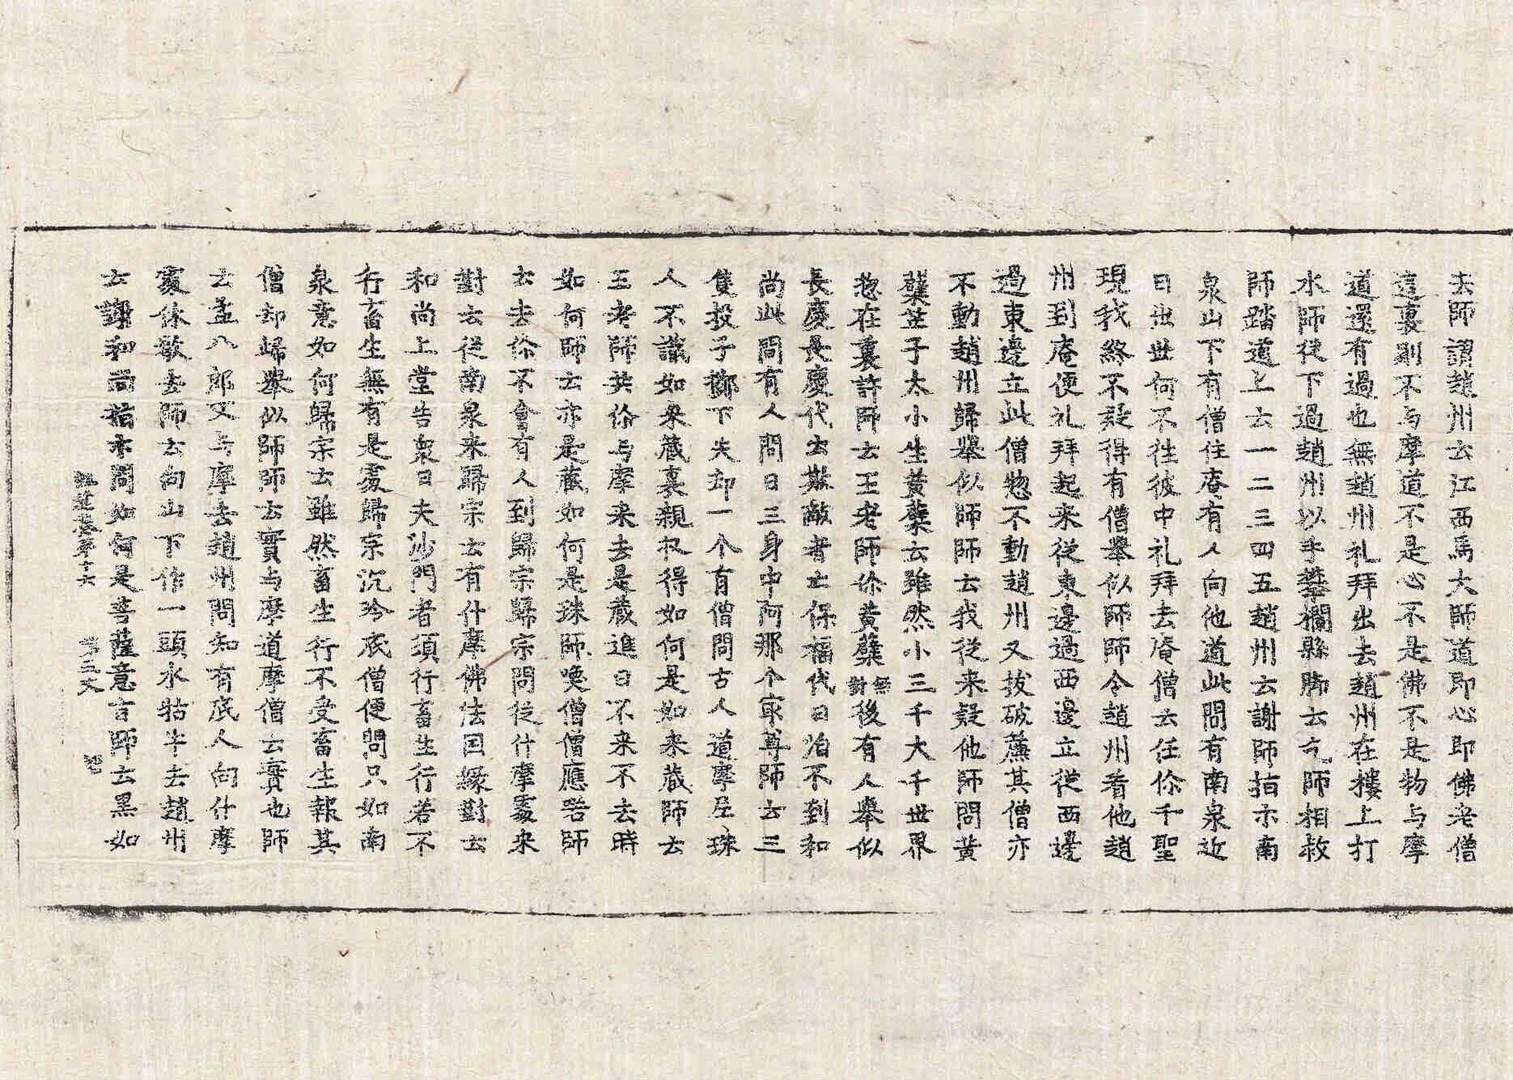 去師謂趙州云江西馬大師道即心即佛老僧
這裏則不与摩道不是心不是佛不是物与摩
道還有過也無趙州礼拜出去趙州在樓上打
水師從下過趙州以手攀欄縣脚云乞師相救
師踏道上云一二三四五趙州云謝師指示南
泉山下有僧住庵有人向他道此間有南泉近
日出世何不往彼中礼拜去庵僧云任你千聖
現我終不疑得有僧舉似師師令趙州看他趙
州到庵便礼拜起来從東邊過西邊立從西邊
過東邊立此僧惣不動趙州又拔破簾其僧亦
不動趙州歸舉似師師云我從来疑他師問黄
蘗笠子太小生黄蘗云雖然小三千大千世界
惣在裏許師云王老師你黄蘗無對後有人舉似
長慶長慶代云欺敵者亡保福代曰洎不到和
尚此間有人問曰三身中阿那个寂尊師云三
隻投子擲下失却一个有僧問古人道摩尼珠
人不識如来藏裏親収得如何是如来藏師云
王老師共你与摩来去是藏進曰不来不去時
如何師云亦是藏如何是珠師喚僧僧應喏師
云去你不會有人到歸宗歸宗問從什摩處来
對云從南泉来歸宗云有什摩佛法因縁對云
和尚上堂告衆曰夫沙門者須行畜生行若不
行畜生無有是處歸宗沉吟底僧便問只如南
泉意如何歸宗云雖然畜生行不受畜生報其
僧却歸舉似師師云實与摩道摩僧云實也師
云孟八郎又与摩去趙州問知有底人向什摩
處休歇去師云向山下作一頭水牯牛去趙州
云謝和尚指示問如何是菩薩意言師云黑如
祖堂卷第十六 第五丈